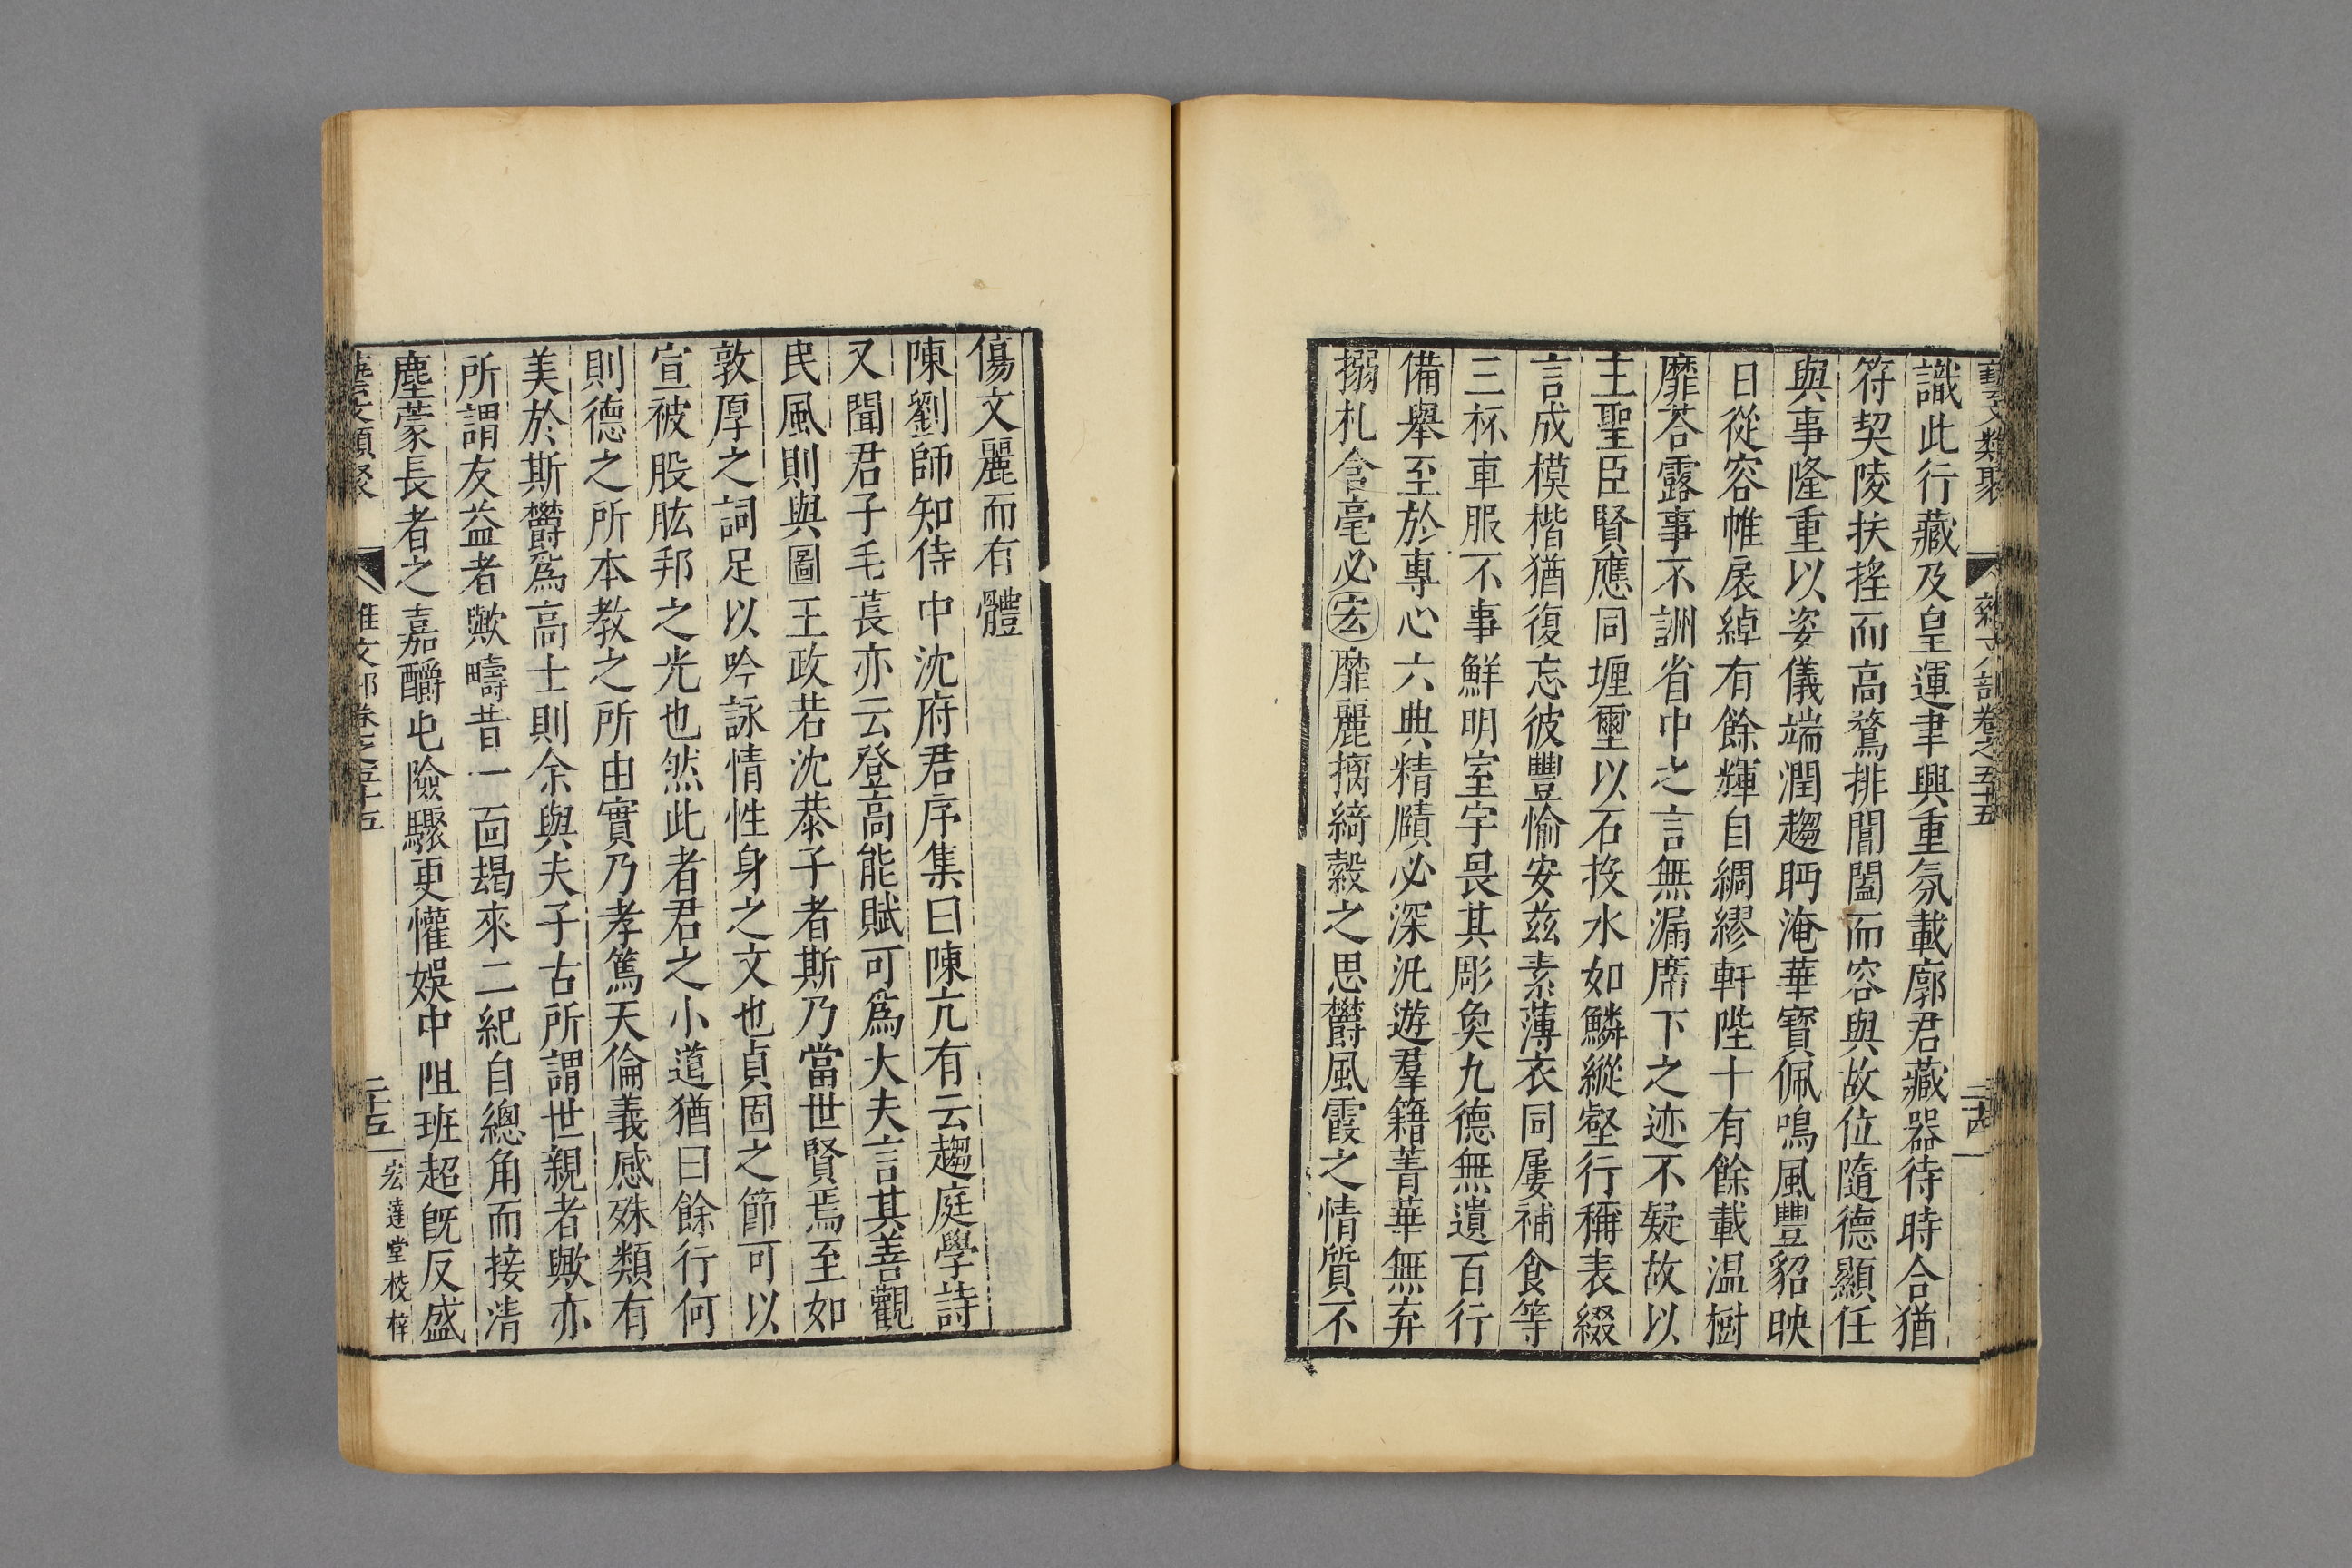 藝文類聚 雜文部卷之五十五 二十四
識此行藏及皇運聿興重氛載廓君藏器待時合猶
符契陵扶搖而高騖排閶闔而容與故位隨德顯任
與事隆重以姿儀端潤趨眄淹華寶佩鳴風豐貂映
日從容帷扆綽有餘輝自綢繆軒陛十有餘載温樹
靡荅露事不詶省中之言無漏席下之迹不疑故以
主聖臣賢應同堙壐以石投水如鱗縱壑行稱表綴
言成模楷猶復忘彼豐愉安兹素薄衣同屢補食等
三杯車服不事鮮明室宇畏其彫奐九德無遺百行
備舉至於專心六典精賾必深汎遊羣籍菁華無弃
搦札含毫必宏靡麗摛綺縠之思欝風霞之情質不
傷文麗而有體
陳劉師知侍中沈府君序集曰陳亢有云趨庭學詩
又聞君子毛萇亦云登高能賦可爲大夫言其善觀
民風則與圖王政若沈恭子者斯乃當世賢焉至如
敦厚之詞足以吟詠情性身之文也貞固之節可以
宣被股肱邦之光也然此者君之小道猶曰餘行何
則德之所本教之所由實乃孝篤天倫義感殊類有
美於斯欝爲高士則余與夫子古所謂世親者歟亦
所謂友益者歟疇昔一面朅來二紀自總角而接清
塵蒙長者之嘉釂屯險驟更懽娛中阻班超旣反盛
藝文類聚 雜文部卷之五十五 二十五 宏達堂校梓